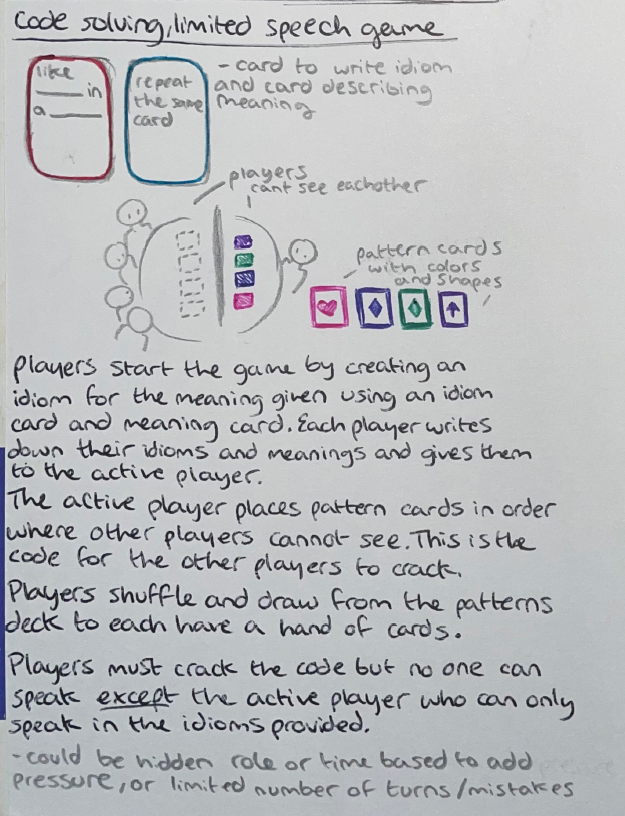 Code solving, limited speech game
like
____ in
a ____
repeat
the same
card
- card to write idiom
and card describing
meaning
players
cant see eachother
pattern cards
with colors
and shapes
players start the game by creating an
idiom for the meaning given using an idiom
card and meaning card. Each player writes
down their idioms and meanings and gives them
to the active player.
The active player places pattern cards in order
where other players cannot see. This is the
code for the other players to crack.
Players shuffle and draw from the patterns
deck to each have a hand of cards.
Players must crack the code but no one can
speak except the active player who can only
speak in the idioms provided.
- could be hidden role or time based to add
pressure, or limited number of turns/mistakes